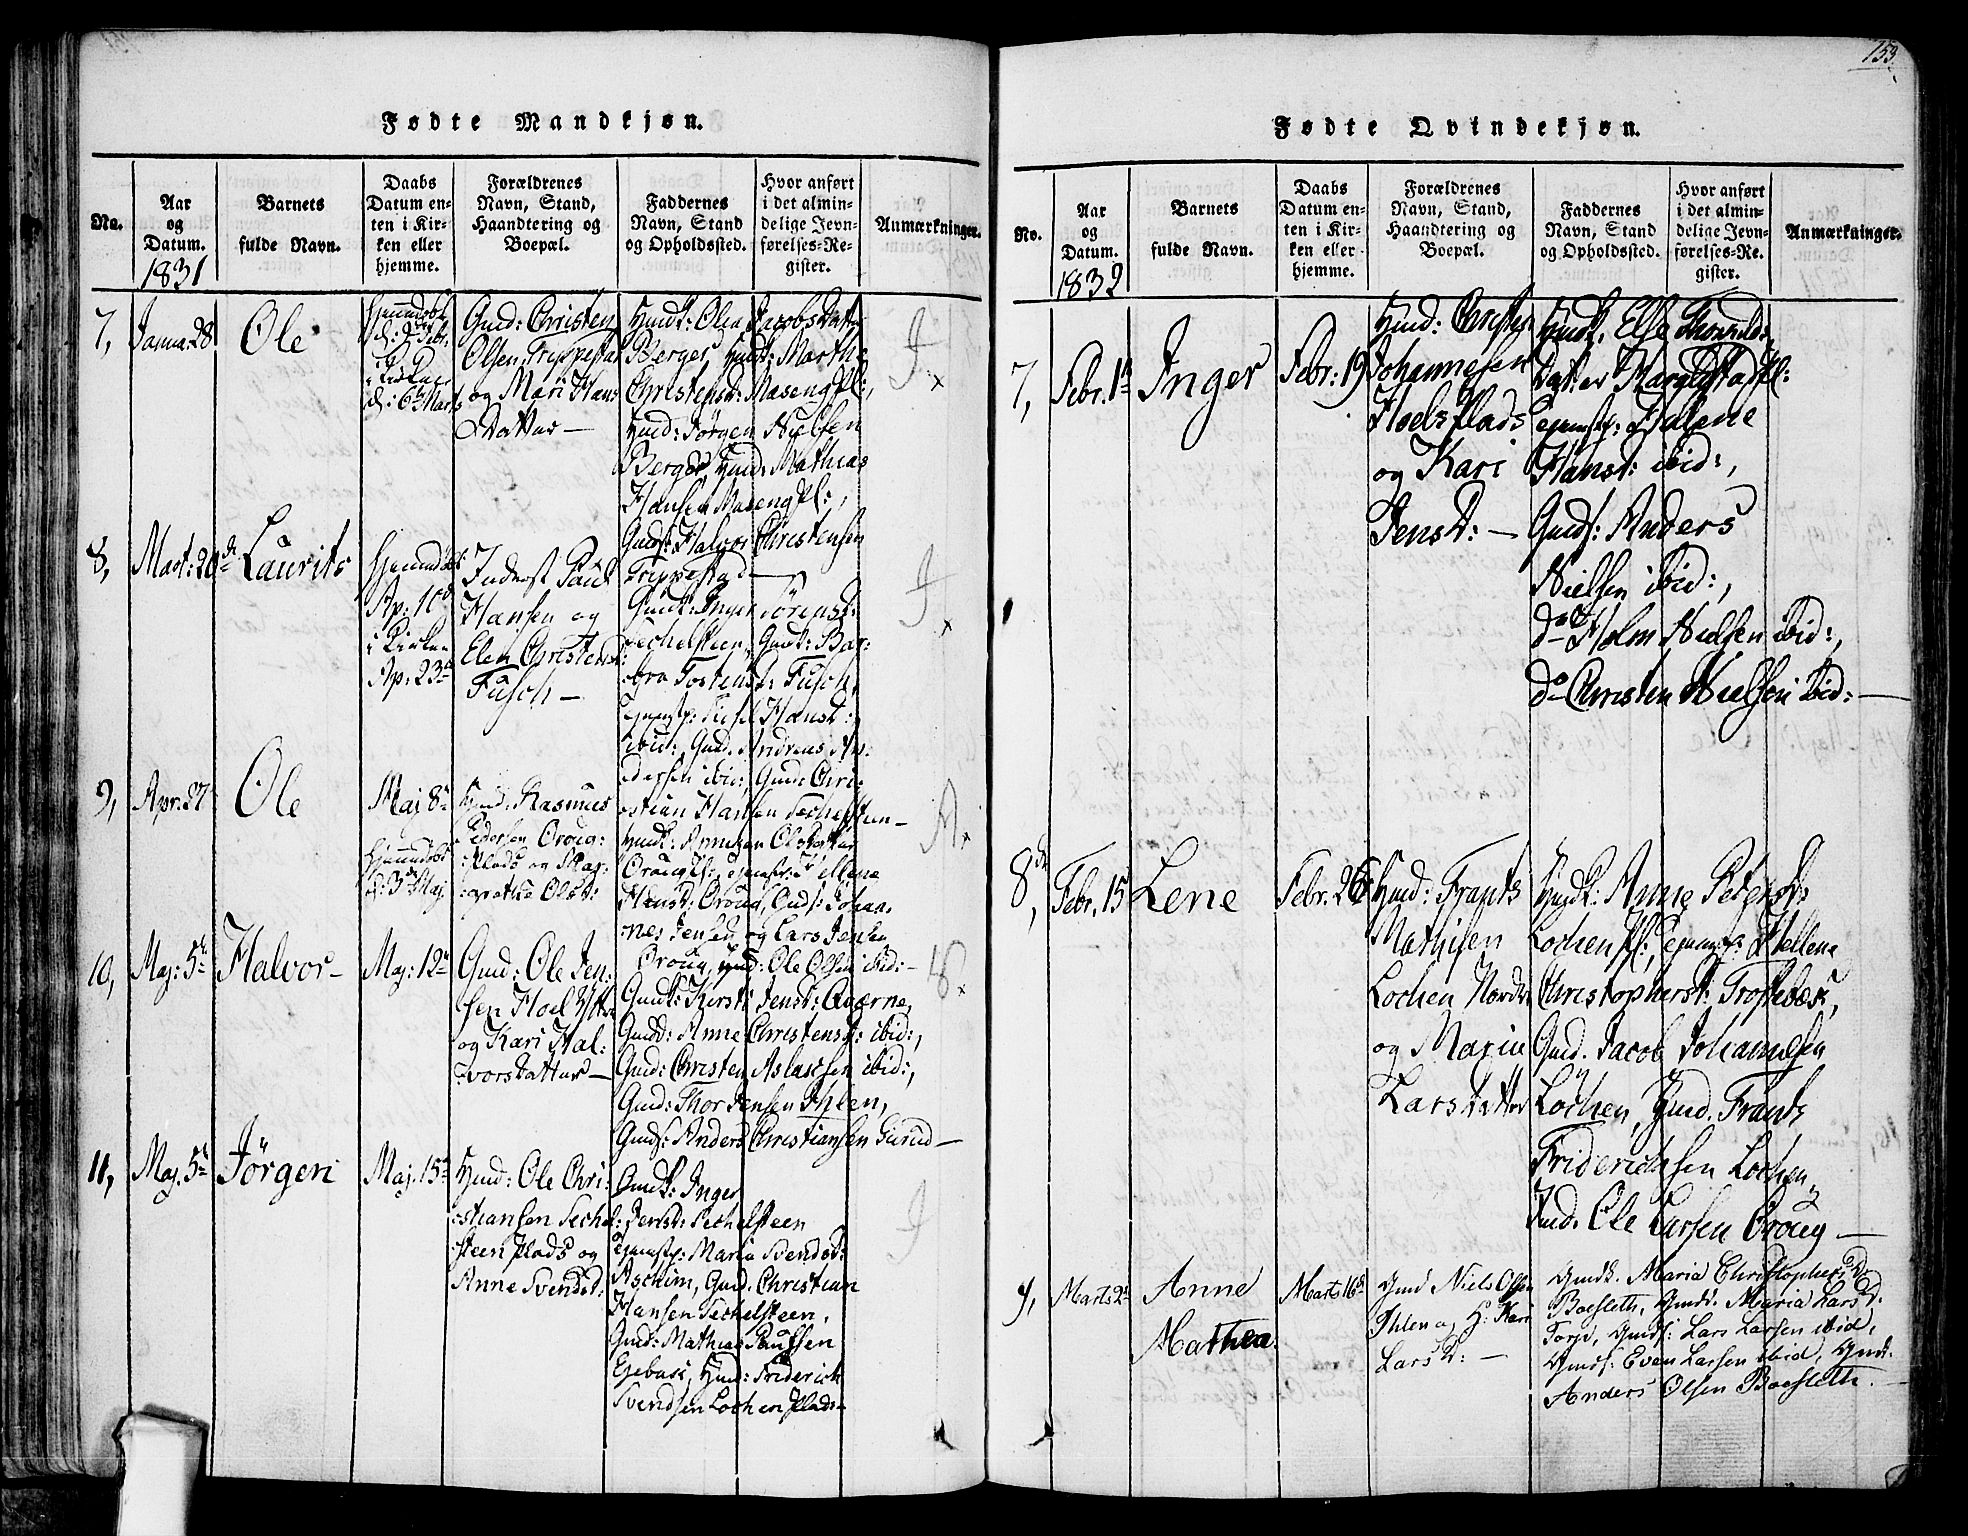 153.
Fødte Mandkjøn.
No.
Aar
og
Datum.
1831
Barnets
fulde Navn.
Daabs
Datum en-
ten i Kir-
ken eller
hjemme.
Forældrenes
Navn, Stand,
Haandtering og
Boepæl.
Faddernes
Navn, Stand
og Opholdssted.
Hvor anført
i det almin-
delige Jevn-
førelses-Re-
gister.
Anmærkninger.
7,
Janua: 28
Ole
Hjemmedøbt
i Kirken
d: 6te Marts
Gmd: Christen
Olsen Trippestad
og Mari Hans
Datter —
Hmdk: Olea Jacobsdatter
Berger, Hmdk: Marthe
Christensd: Masengpl:,
Hmd: Jørgen Nielsen
Berger, Hmd: Mathias
Hansen Masengpl:,
Gmds: Halvor Christensen
Trippestad —
8,
Mart: 20de
Laurits
Hjemmedøbt
Ap: 10de
i Kirken
Ap: 23de
Inderst Paul
Hansen og
Elen Christensd:
Fusch —
Gmdk: Inger Sørensd:
Sechelsteen, Gmdk: Bar-
bra Tostensd: Fusch,
Hansd:
ibid:, Gmd. Andreas An-
dersen ibid:, Gmd: Chri-
stian Hansen Sechelsteen —
9,
Apr. 27
Ole
Maj 8de
Hjemmedøbt
d: 3de Maj.
Hmd. Rasmus
Pedersen Oroug-
Plads og Mar-
grethe Olsd:
Hmdk: Olsdatter
Orougpl:, Hellene
Hansd: Oroug, Gmds: Johan-
nes Jensen og Lars Jensen
Oroug, Hmd: Ole Olsen ibid: —
10,
Maj: 5te
Halvor —
Maj: 12te
Gmd: Ole Jen-
sen Hoel Ytter
og Kari Hal-
vorsdatter —
Gmdk: Kirsti Jensd: Qværne,
Gmdd: Anne Christensd: ibid:,
Gmd: Christen Aslacsen ibid:,
Gmd: Thor Jensen Ihlen,
Gmds: Anders Christiansen Gurud —
11,
Maj. 5te
Jörgen
Maj. 15de
Hmd: Ole Chri-
stiansen Sechel-
steen Plads og
Anne Svendsd:
Gmdk: Inger
Jensd: Sechelsteen
Maria Svendsd:
Aschim, Gmd. Christian
Hansen Sechelsteen,
Gmd: Mathias Paulsen
Egebasc, Hmd: Friderich
Svendsen Lochen Plads
Fødte Qvindekjøn.
No.
Aar
og
Datum.
1832
Barnets
fulde Navn.
Daabs
Datum en-
ten i Kir-
ken eller
hjemme.
Forældrenes
Navn, Stand,
Haandtering og
Boepæl.
Faddernes
Navn, Stand
og Opholdssted.
Hvor anført
i det almin-
delige Jevn-
førelses-Re-
gister.
Anmærkninger.
7,
Febr. 1te
Inger
Febr: 19
Hmd: Christen
Johannesen
Hoels Plads
og Kari
Jensd: —
Hmdk. Else
Hansd: ibid:,
Gmds: Anders
Nielsen ibid:,
do Holm Nielsen ibid:,
do Christen Nielsen ibid: —
8de,
Febr. 15
Lene
Febr. 26
Hmd: Frants
Mathisen
Lochen Nordre
og Maria
Larsdatter
Hmdk: Anne Petersd:
Lochenpl:, Hellene
Christophersd: Troshebæk,
Gmd. Jacob Johannesen
Lochen, Hmd. Frants
Friderichsen Lochen,
Ind. Ole Larsen Oroug —
9,
Marts 2de
Anne
Mathea.
Marts 16de
Gmd Niels Olsen
Ihlen og H: Kari
Lars D: —
Gmdk. Maria Christophers D.
Boesleth, Gmdd: Maria Lars D:
Torp, Gmds: Lars Larsen ibid,
Gmds: Even Larsen ibid, Gmd:
Anders Olsen Boesleth. —